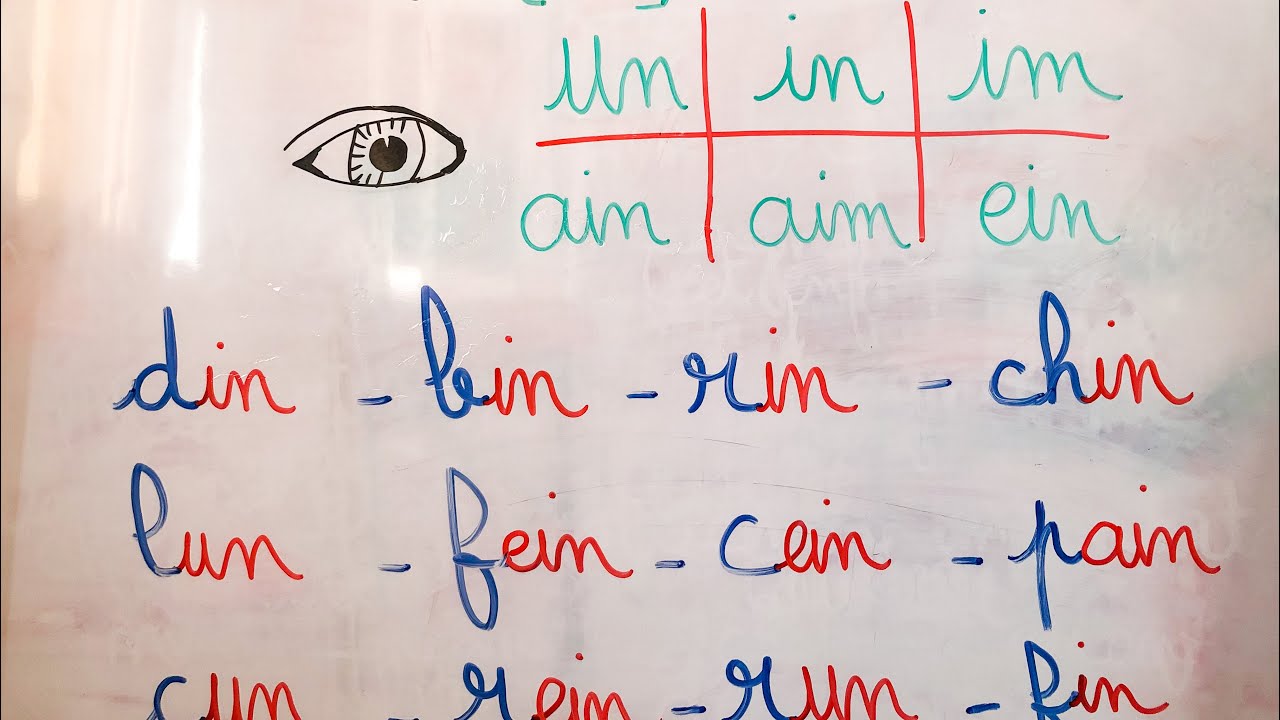 un in im
ain aim ein
din - bin - rin - chin
lun - fein - cein - pain
cun - rein - run - fin